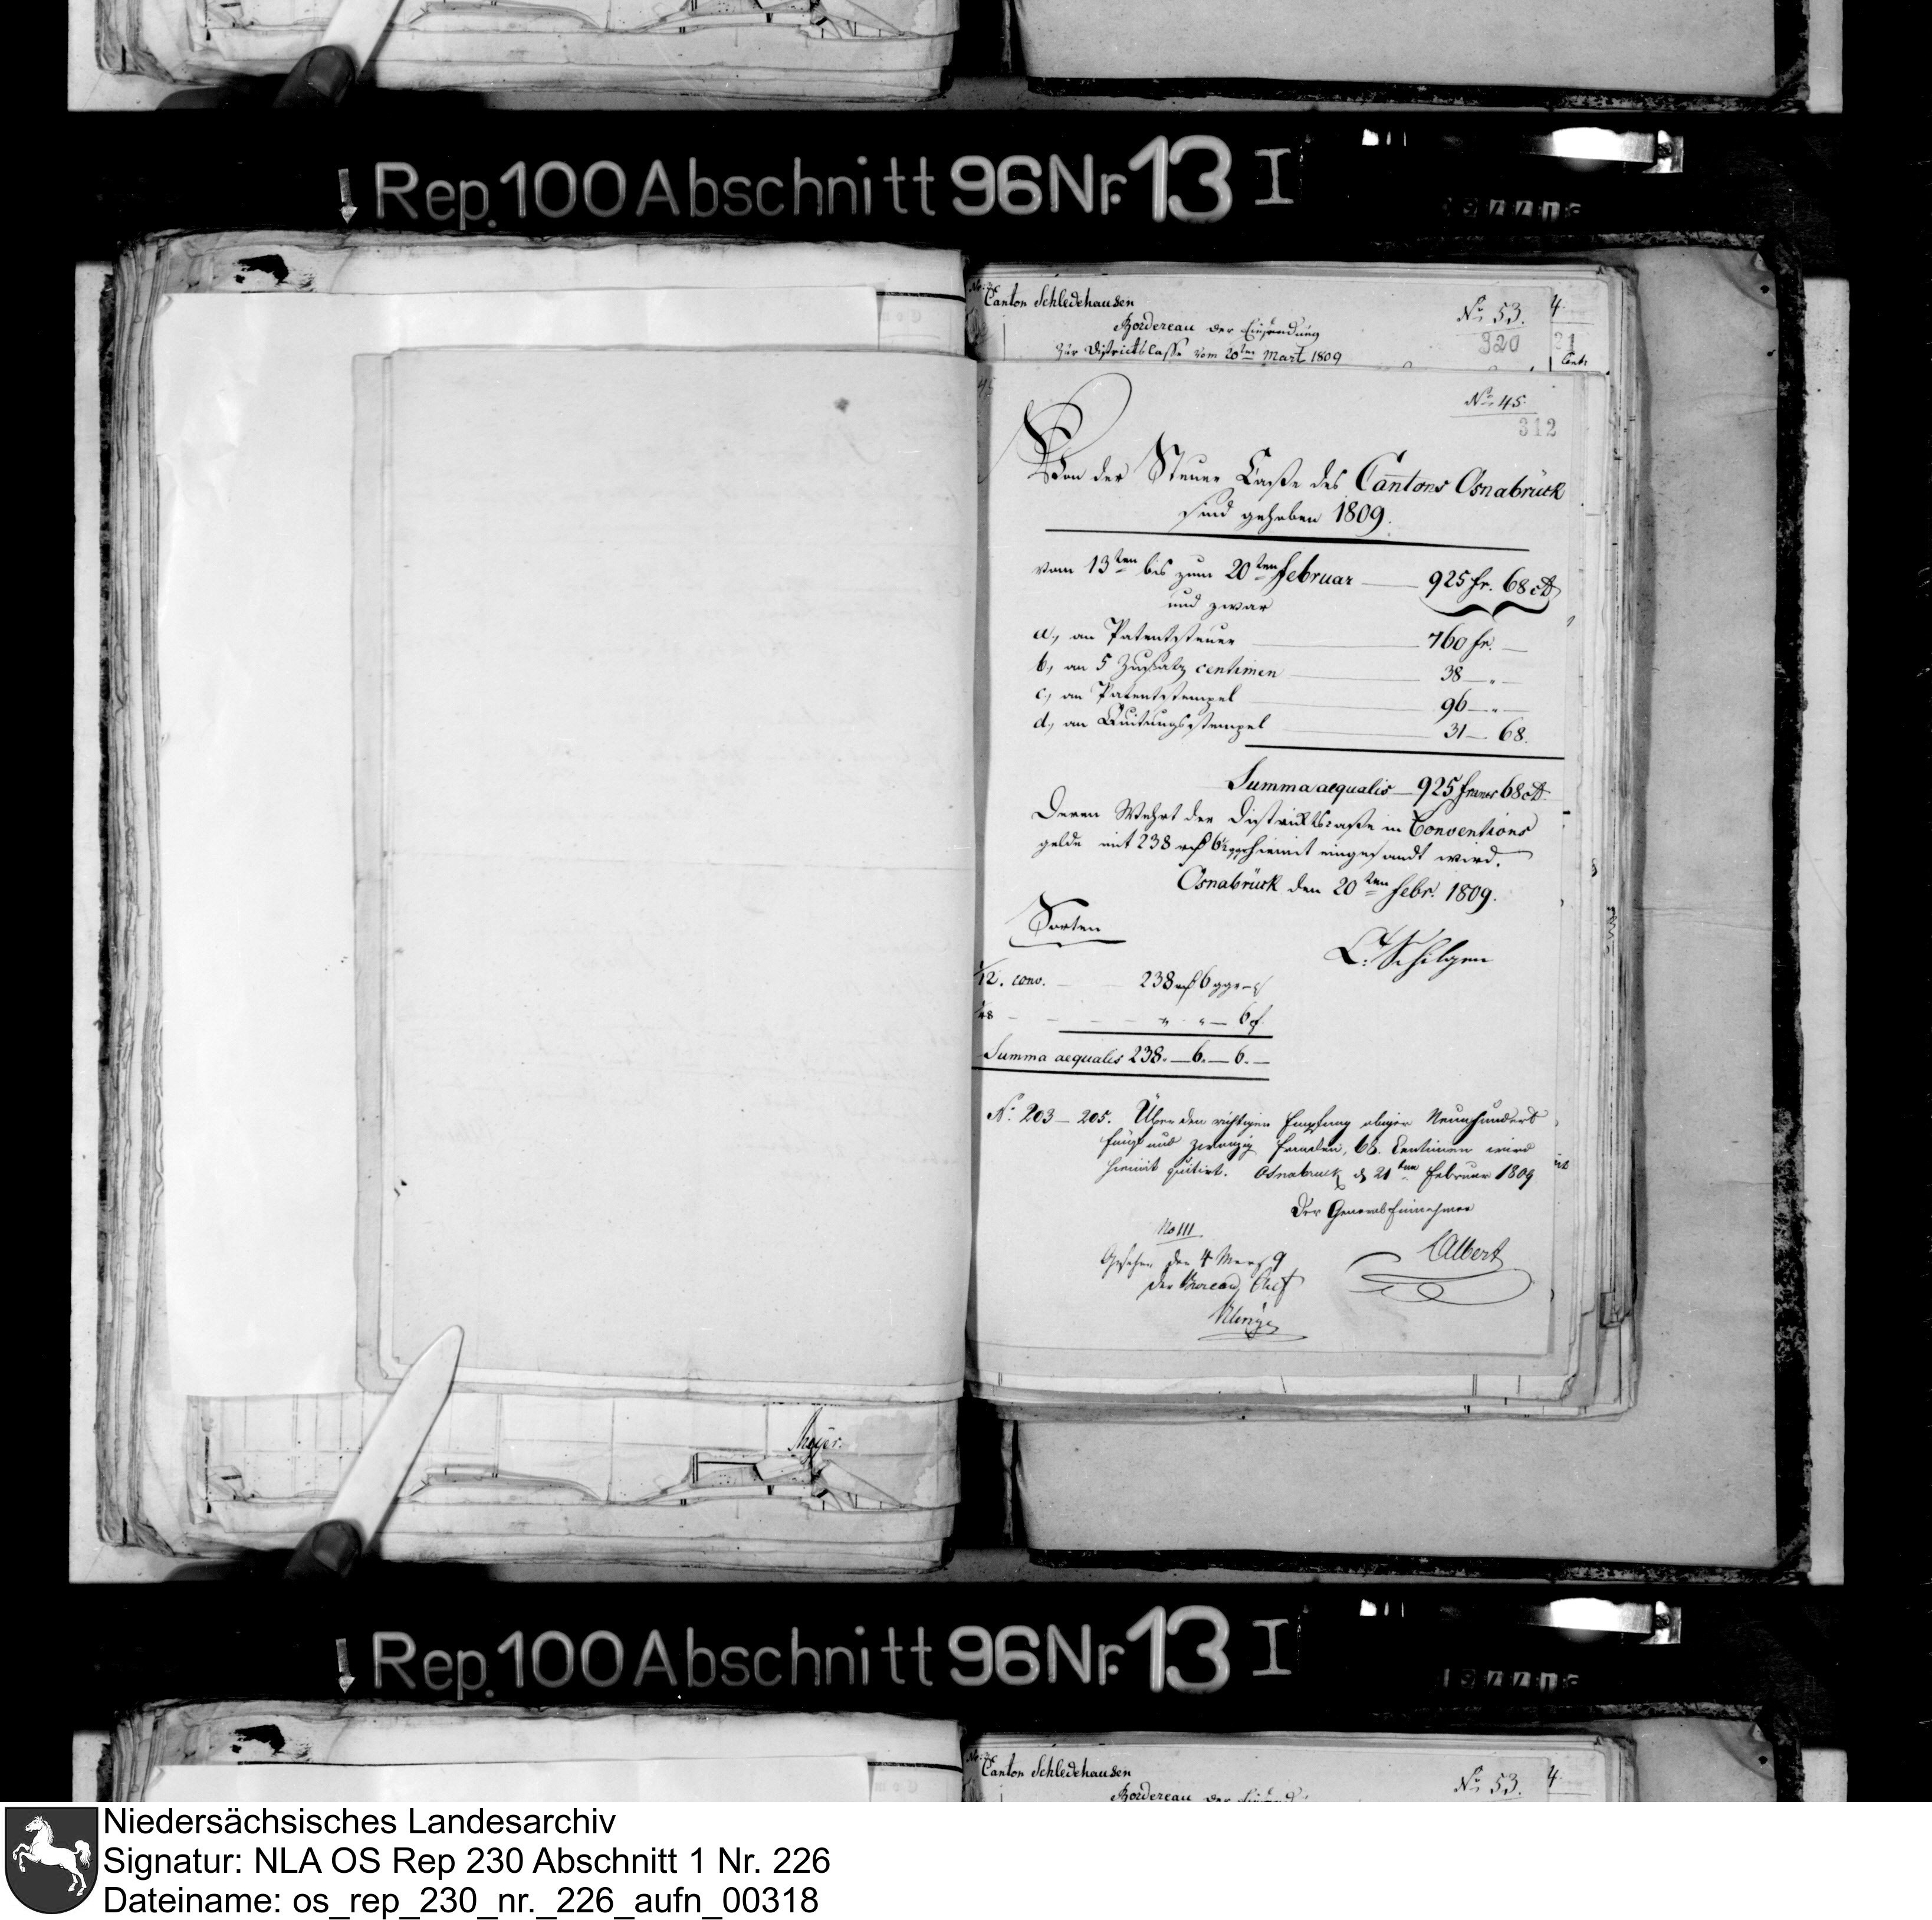 Rep. 100 Abschnitt 96 Nr. 13 I
Canton Schledehausen
Bordereau der Einsendung
zur Districtscasse vom 20ten Mart 1809
No. 53.
320
4.
21
Cents
No. 45.
312
Von der Steuer Casse des Cantons Osnabrück
sind gehoben 1809.
vom 13ten bis zum 20ten Februar — 925 fr. 68 ct
und zwar
a., an Patentsteuer — 760 fr. —
b., an 5 Zusatz centimen — 38 — „ —
c., an Patentstempel — 96 — „ —
d., an Quitungsstempel — 31 — 68.
Summa aequalis — 925 francs 68 ct.
Deren Wehrt der Districtscasse in Conventions
gelde mit 238 rf 6½ ggr hiemit eingesandt wird.
Osnabrück den 20ten Febr. 1809.
C. Schilgen
Sorten
1/12. conv. 238 rf 6 ggr
1/48 — — — — „ „ — 6 d.
Summa aequalis 238. — 6. — 6. —
No. 203 — 205. Über den richtigen Empfang obiger Neunhundert
fünf und zwanzig Franken, 68. Centimen wird
hiemit quitirt. Osnabruck d 21ten Februar 1809
Der General Einnehmer
Albert
No 111
Gesehen den 4 Merz 9
der Bureau Chef
Meyer.
Rep. 100 Abschnitt 96 Nr. 13 I
Canton Schledehausen
Bordereau der
No. 53.
4.
Niedersächsisches Landesarchiv
Signatur: NLA OS Rep 230 Abschnitt 1 Nr. 226
Dateiname: os_rep_230_nr._226_aufn_00318